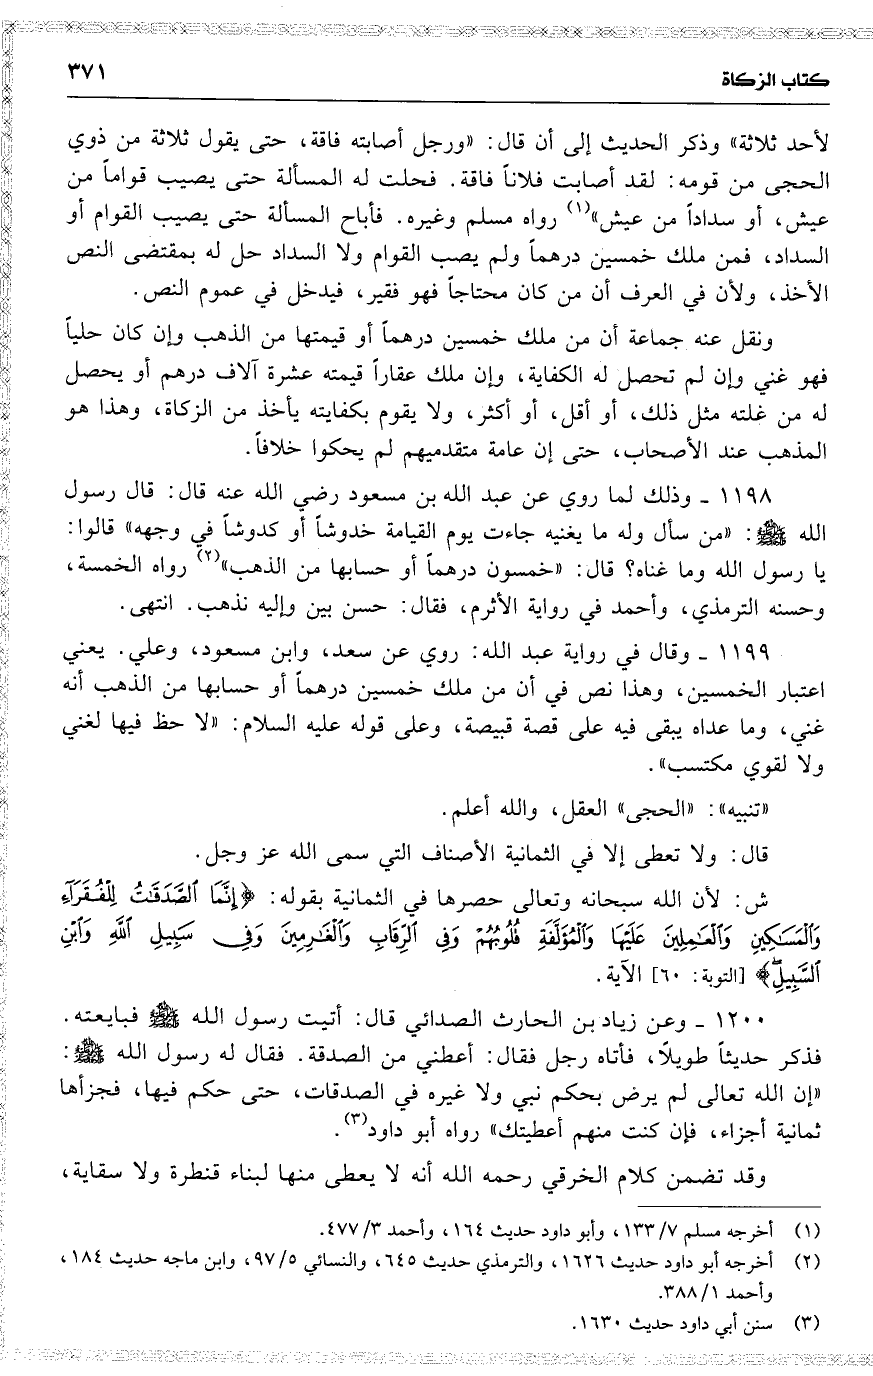 كتاب الزكاة ٣٧١
لأحد ثلاثة» وذكر الحديث إلى أن قال: «ورجل أصابته فاقة، حتى يقول ثلاثة من ذوي
الحجى من قومه: لقد أصابت فلاناً فاقة. فحلت له المسألة حتى يصيب قواماً من
عيش، أو سداداً من عيش»(١) رواه مسلم وغيره. فأباح المسألة حتى يصيب القوام أو
السداد، فمن ملك خمسين درهماً ولم يصب القوام ولا السداد حل له بمقتضى النص
الأخذ، ولأن في العرف أن من كان محتاجاً فهو فقير، فيدخل في عموم النص.
ونقل عنه جماعة أن من ملك خمسين درهماً أو قيمتها من الذهب وإن كان حلياً
فهو غني وإن لم تحصل له الكفاية، وإن ملك عقاراً قيمته عشرة آلاف درهم أو يحصل
له من غلته مثل ذلك، أو أقل، أو أكثر، ولا يقوم بكفايته يأخذ من الزكاة، وهذا هو
المذهب عند الأصحاب، حتى إن عامة متقدميهم لم يحكوا خلافاً.
١١٩٨ ـ وذلك لما روي عن عبد الله بن مسعود رضي الله عنه قال: قال رسول
الله ﷺ: «من سأل وله ما يغنيه جاءت يوم القيامة خدوشاً أو كدوشاً في وجهه» قالوا:
يا رسول الله وما غناه؟ قال: «خمسون درهماً أو حسابها من الذهب»(٢) رواه الخمسة،
وحسنه الترمذي، وأحمد في رواية الأثرم، فقال: حسن بين وإليه نذهب. انتهى.
١١٩٩ ـ وقال في رواية عبد الله: روي عن سعد، وابن مسعود، وعلي. يعني
اعتبار الخمسين، وهذا نص في أن من ملك خمسين درهماً أو حسابها من الذهب أنه
غني، وما عداه يبقى فيه على قصة قبيصة، وعلى قوله عليه السلام: «لا حظ فيها لغني
ولا لقوي مكتسب».
«تنبيه»: «الحجى» العقل، والله أعلم.
قال: ولا تعطى إلا في الثمانية الأصناف التي سمى الله عز وجل.
ش: لأن الله سبحانه وتعالى حصرها في الثمانية بقوله: ﴿إِنَّمَا ٱلصَّدَقَٰتُ لِلْفُقَرَآءِ
وَٱلْمَسَٰكِينِ وَٱلْعَٰمِلِينَ عَلَيْهَا وَٱلْمُؤَلَّفَةِ قُلُوبُهُمْ وَفِى ٱلرِّقَابِ وَٱلْغَٰرِمِينَ وَفِى سَبِيلِ ٱللَّهِ وَٱبْنِ
ٱلسَّبِيلِۖ﴾ [التوبة: ٦٠] الآية.
١٢٠٠ ـ وعن زياد بن الحارث الصدائي قال: أتيت رسول الله ﷺ فبايعته.
فذكر حديثاً طويلاً، فأتاه رجل فقال: أعطني من الصدقة. فقال له رسول الله ﷺ:
«إن الله تعالى لم يرض بحكم نبي ولا غيره في الصدقات، حتى حكم فيها، فجزأها
ثمانية أجزاء، فإن كنت منهم أعطيتك» رواه أبو داود(٣).
وقد تضمن كلام الخرقي رحمه الله أنه لا يعطى منها لبناء قنطرة ولا سقاية،
(١) أخرجه مسلم ١٣٣/٧، وأبو داود حديث ١٦٤، وأحمد ٤٧٧/٣.
(٢) أخرجه أبو داود حديث ١٦٢٦، والترمذي حديث ٦٤٥، والنسائي ٩٧/٥، وابن ماجه حديث ١٨٤،
وأحمد ٣٨٨/١.
(٣) سنن أبي داود حديث ١٦٣٠.